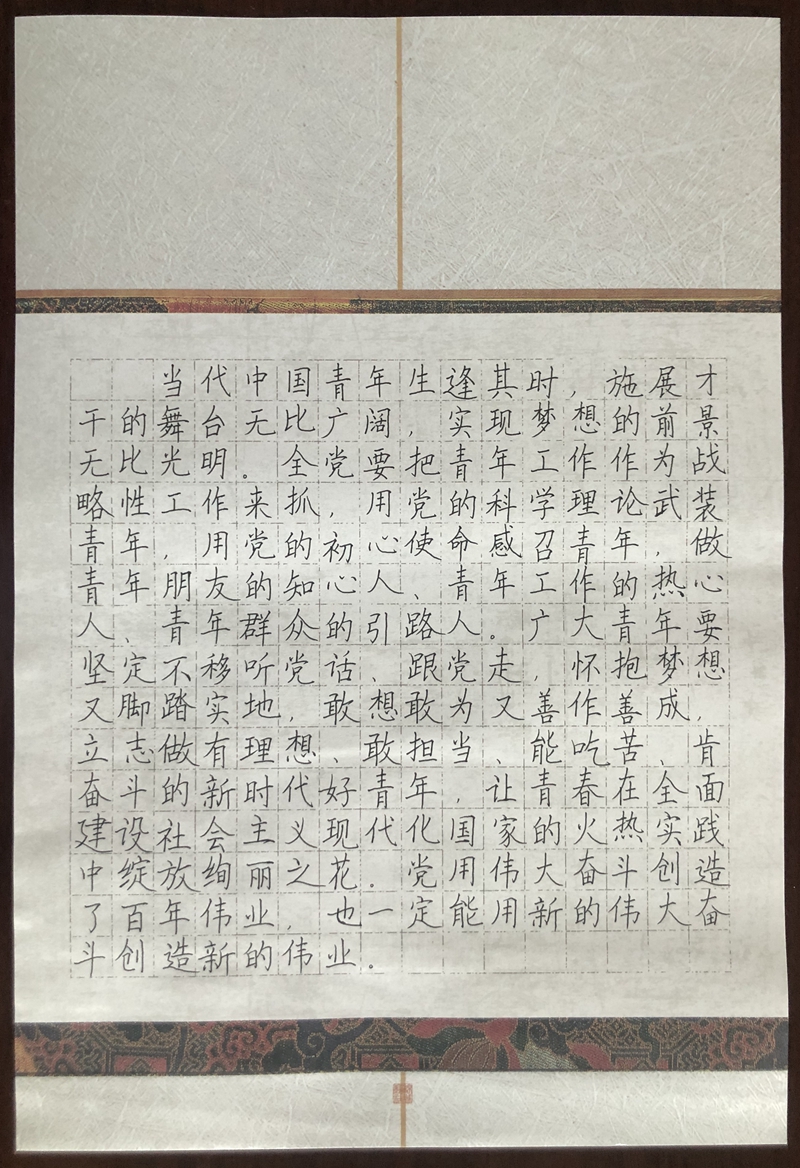 当代中国青年生逢其时，施展才
干的舞台无比广阔，实现梦想的前景
无比光明。全党要把青年工作作为战
略性工作来抓，用党的科学理论武装
青年，用党的初心使命感召青年，做
青年朋友的知心人、青年工作的热心
人、青年群众的引路人。广大青年要
坚定不移听党话、跟党走，怀抱梦想
又脚踏实地，敢想敢为又善作善成，
立志做有理想、敢担当、能吃苦、肯
奋斗的新时代好青年，让青春在全面
建设社会主义现代化国家的火热实践
中绽放绚丽之花．党用伟大奋斗创造
了百年伟业，也一定能用新的伟大奋
斗创造新的伟业．